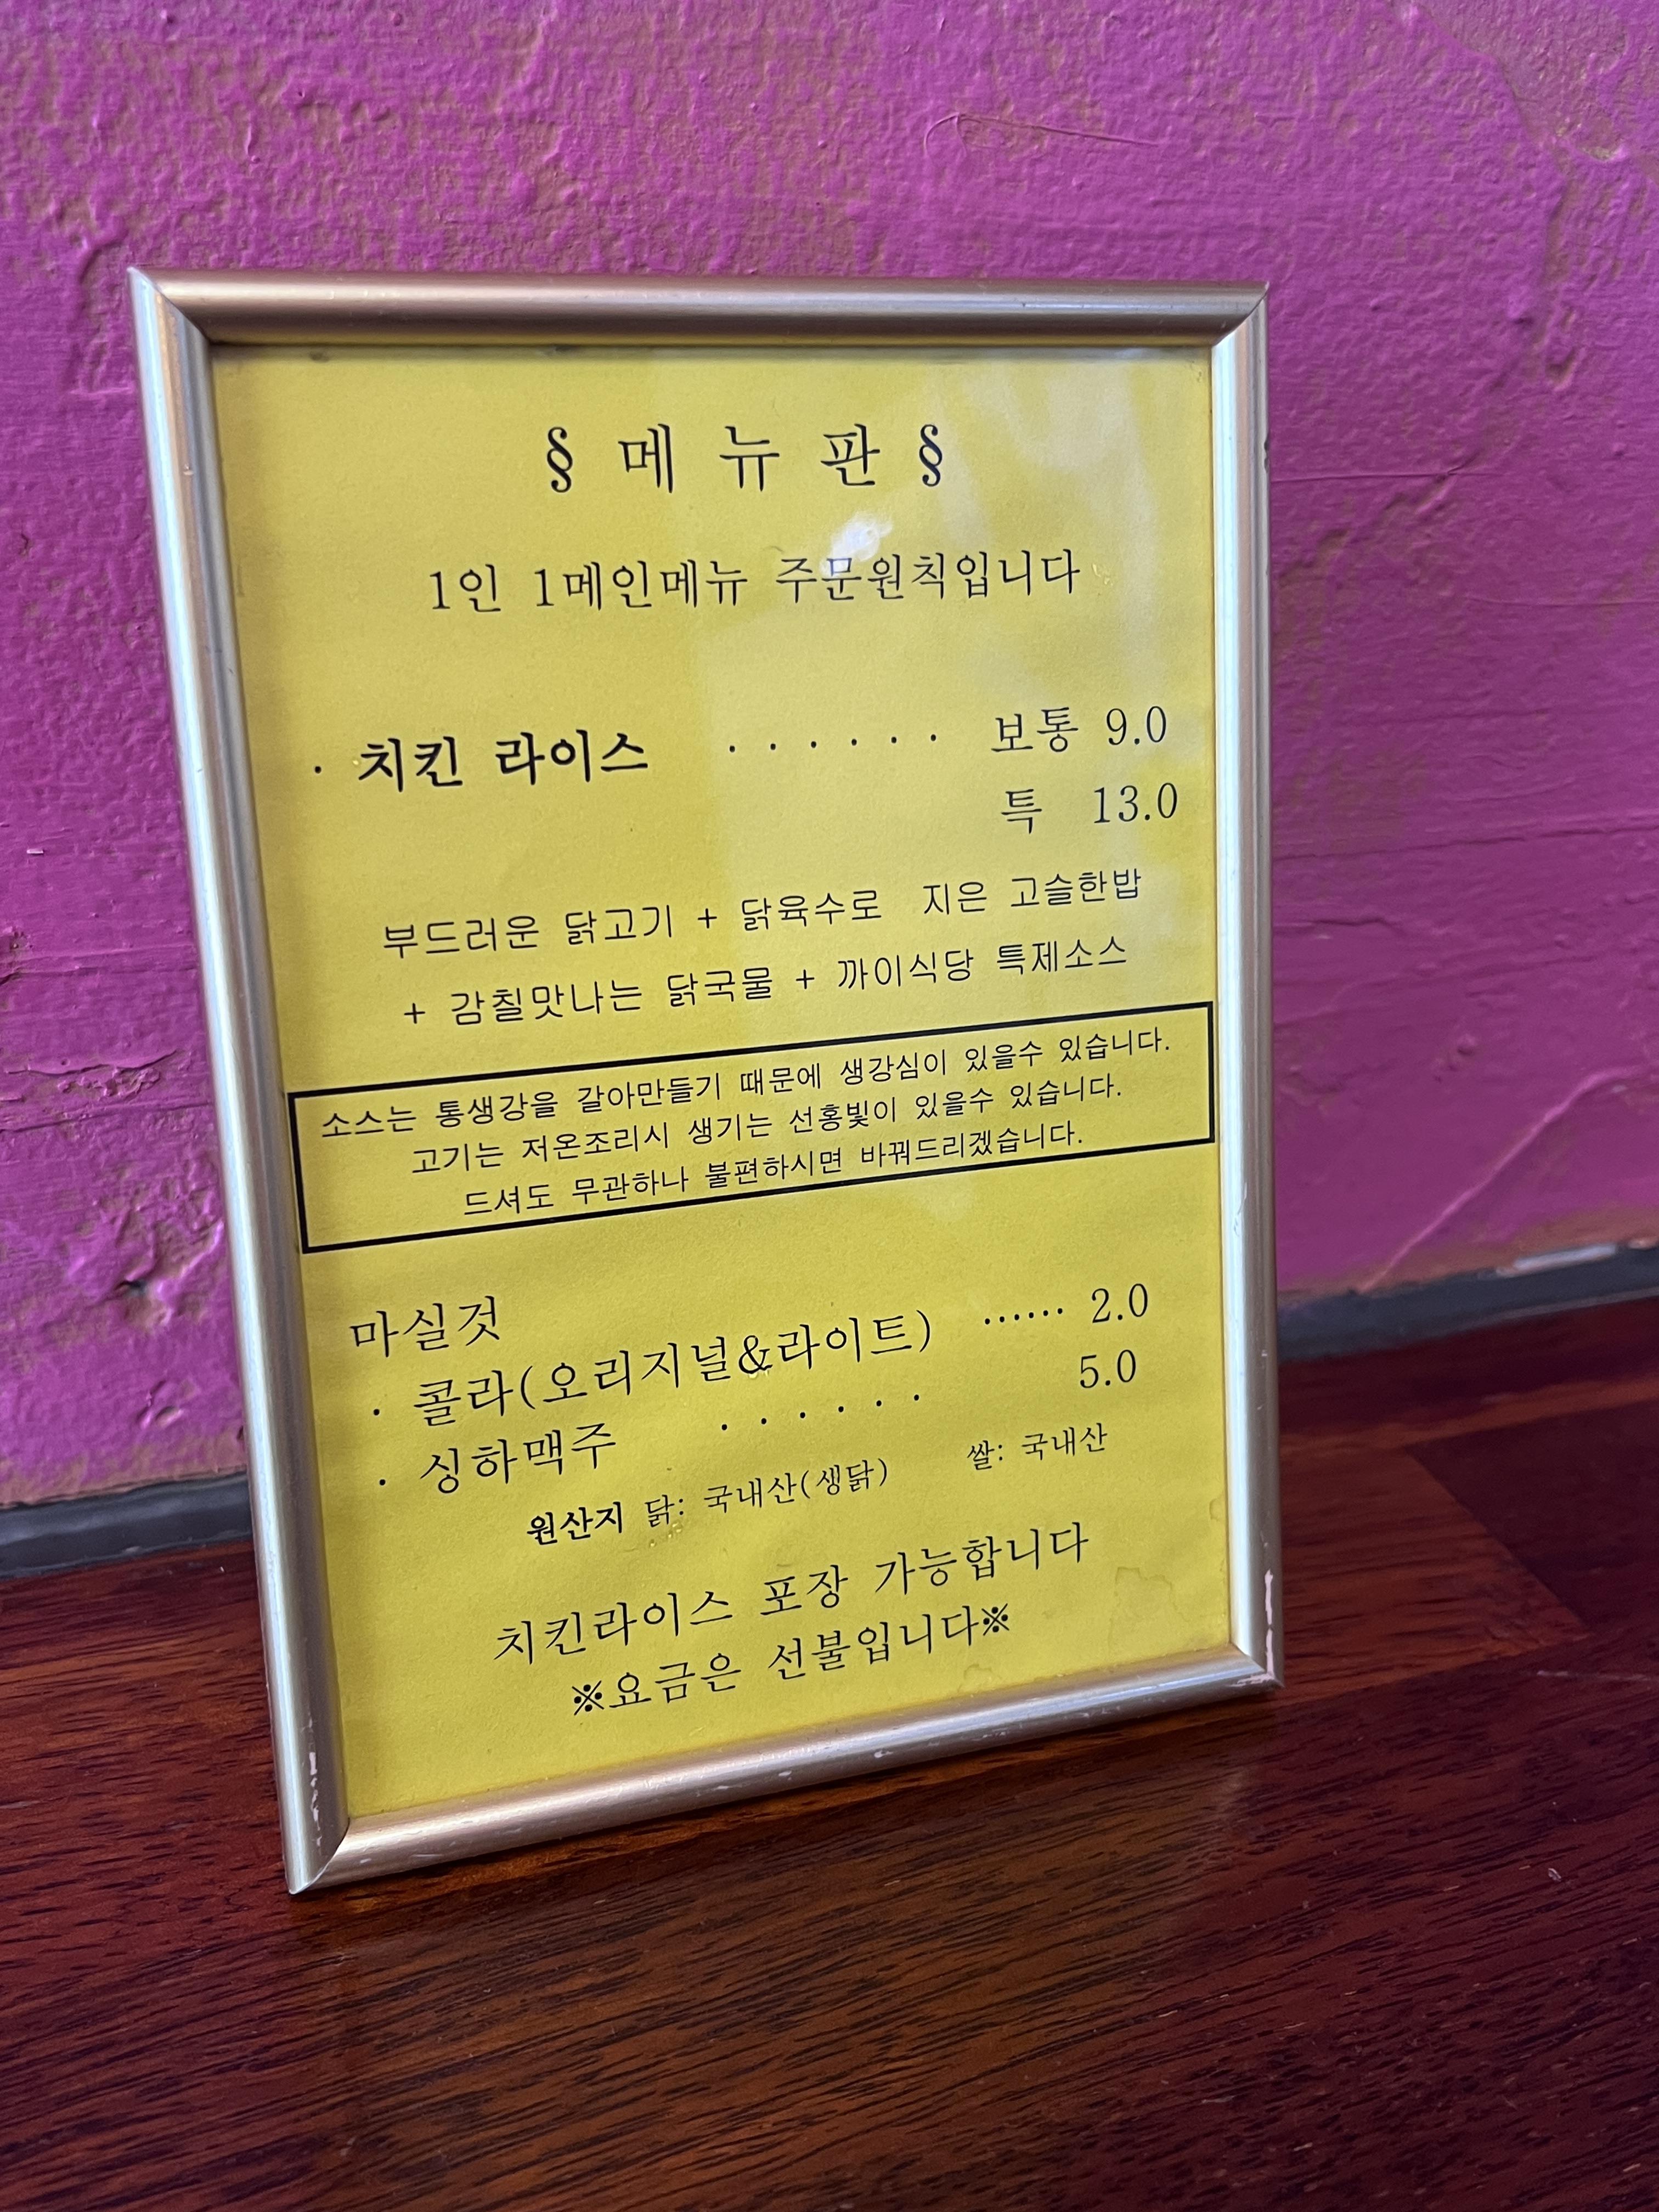 § 메 뉴 판 §
1인 1메인메뉴 주문원칙입니다
· 치킨 라이스 · · · · · · 보통 9.0
특 13.0
부드러운 닭고기 + 닭육수로 지은 고슬한밥
+ 감칠맛나는 닭국물 + 까이식당 특제소스
소스는 통생강을 갈아만들기 때문에 생강심이 있을수 있습니다.
고기는 저온조리시 생기는 선홍빛이 있을수 있습니다.
드셔도 무관하나 불편하시면 바꿔드리겠습니다.
마실것
· 콜라(오리지널&라이트) ······ 2.0
· 싱하맥주 · · · · · · 5.0
원산지 닭: 국내산(생닭) 쌀: 국내산
치킨라이스 포장 가능합니다
※요금은 선불입니다※